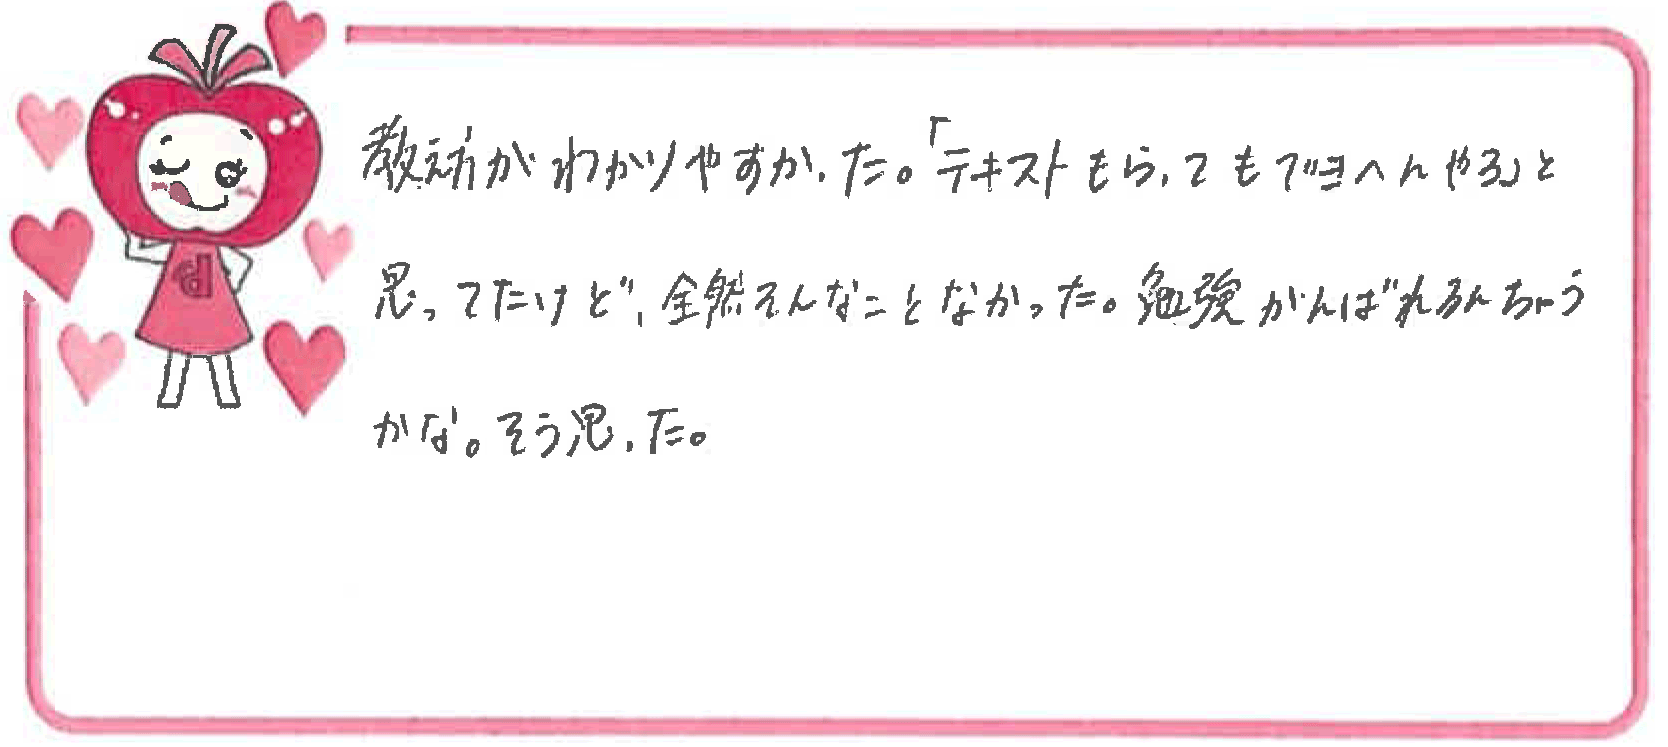 教え方がわかりやすかった。「テキストもらってもできへんやろ」と
思ってたけど、全然そんなことなかった。勉強がんばれるんちゃう
かな。そう思った。